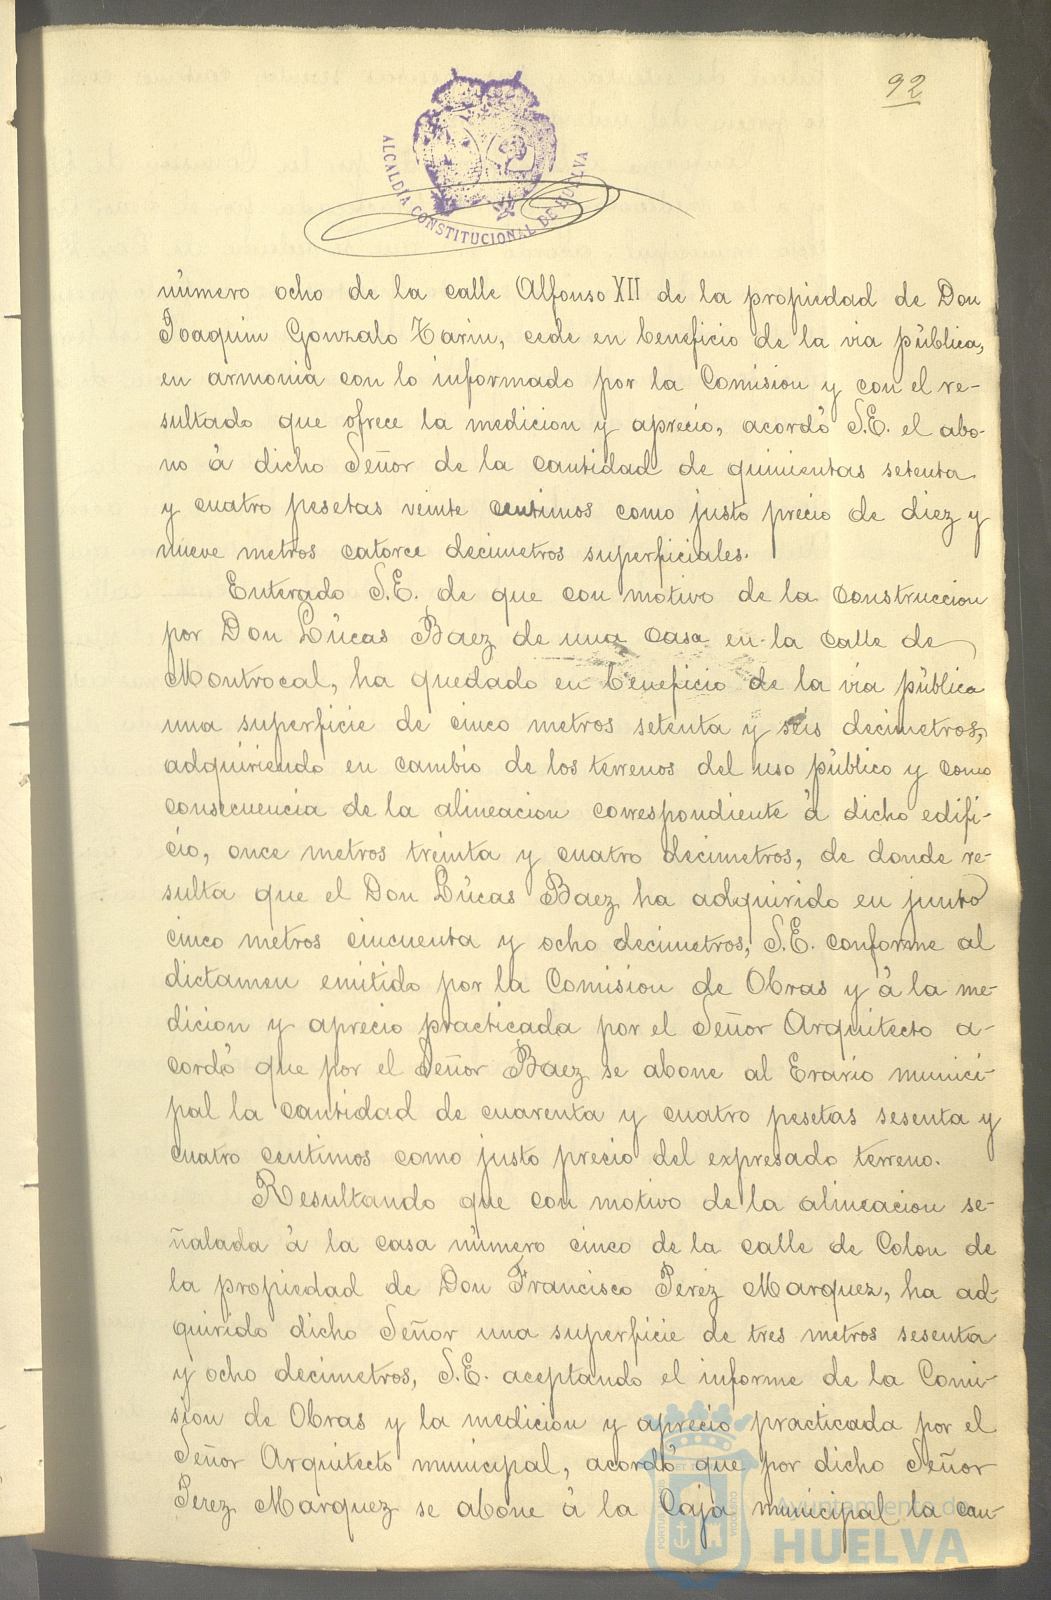 92
ALCALDÍA CONSTITUCIONAL DE HUELVA
número ocho de la calle Alfonso XII de la propiedad de Don
Joaquin Gonzalo Tarin, cede en beneficio de la via pública,
en armonia con lo informado por la Comision y con el re-
sultado que ofrece la medicion y aprecio, acordó S.E. el abo-
no á dicho Señor de la cantidad de quinientas setenta
y cuatro pesetas veinte centimos como justo precio de diez y
nueve metros catorce decimetros superficiales.
Enterado S.E. de que con motivo de la construccion
por Don Lúcas Baez de una casa en la calle de
Montrocal, ha quedado en beneficio de la via pública
una superficie de cinco metros setenta y seis decimetros,
adquiriendo en cambio de los terrenos del uso público y como
consecuencia de la alineacion correspondiente á dicho edifi-
cio, once metros treinta y cuatro decimetros, de donde re-
sulta que el Don Lúcas Baez ha adquirido en junto
cinco metros cincuenta y ocho decimetros, S.E. conforme al
dictamen emitido por la Comision de Obras y á la me-
dicion y aprecio practicada por el Señor Arquitecto a-
cordó que por el Señor Baez se abone al Erario munici-
pal la cantidad de cuarenta y cuatro pesetas sesenta y
cuatro centimos como justo precio del expresado terreno.
Resultando que con motivo de la alineacion se-
ñalada á la casa número cinco de la calle de Colon de
la propiedad de Don Francisco Perez Marquez, ha ad-
quirido dicho Señor una superficie de tres metros sesenta
y ocho decimetros, S.E. aceptando el informe de la Comi-
sion de Obras y la medicion y aprecio practicada por el
Señor Arquitecto municipal, acordó que por dicho Señor
Perez Marquez se abone á la Caja municipal la can-
Ayuntamiento de
HUELVA